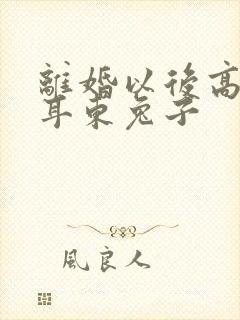 離婚以後高
耳東兔子
風良人